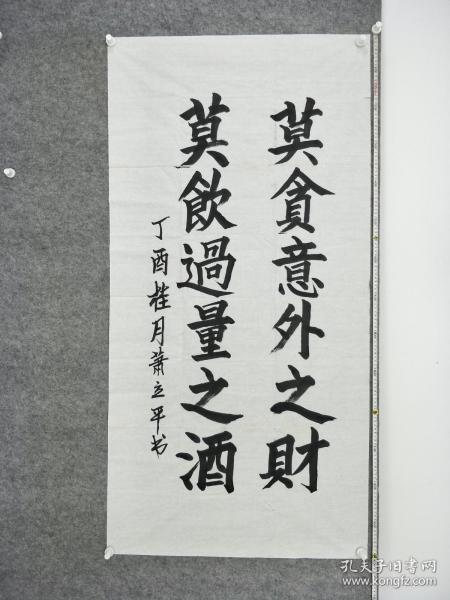 莫貪意外之財
莫飲過量之酒
丁酉桂月蕭立平书
孔夫子旧书网
www.kongfz.com